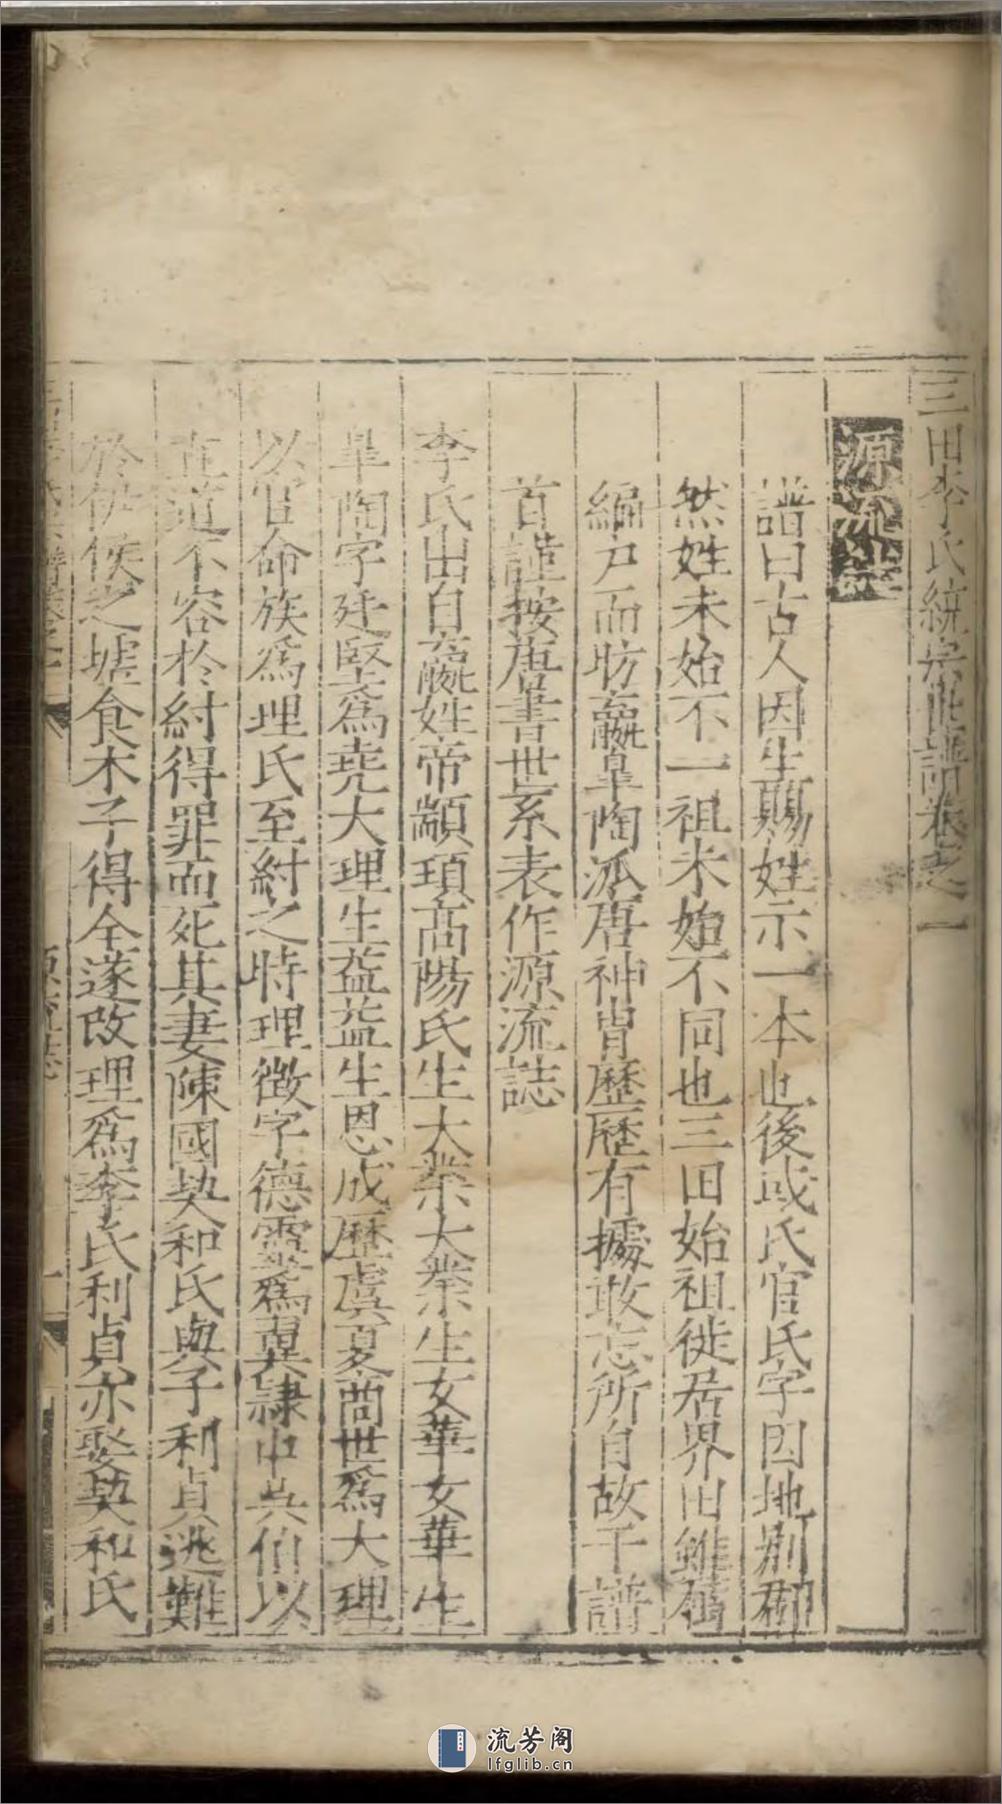 三田李氏統宗世譜卷之一
源流誌
譜曰古人因生賜姓示一本也後或氏官氏字因地別郡
然姓未始不一祖未始不同也三田始祖徙居界田雖
編戶而昉嬴皐陶派唐神胄歷歷有據敢忘所自故于譜
首謹按唐書世系表作源流誌
李氏出自嬴姓帝顓頊高陽氏生大業大業生女華女華生
皐陶字廷堅爲堯大理生益益生恩成歷虞夏商世爲大理
以官命族爲理氏至紂之時理徵字德靈爲翼隸中吳伯以
直道不容於紂得罪而死其妻陳國契和氏與子利貞逃難
於伊侯之墟食木子得全遂改理爲李氏利貞亦娶契和氏
源流誌
一
流芳阁
lfglib.cn